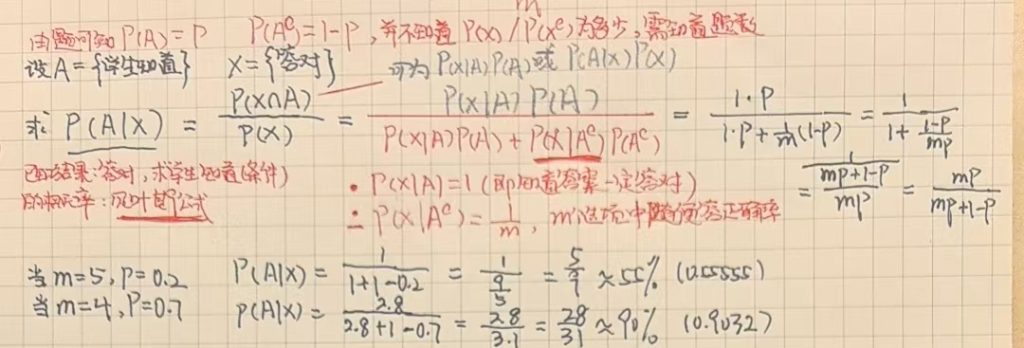 m
由题可知 P(A)=P P(Aᶜ)=1-P，并不知道 P(x)/P(xᶜ)为多少，需知道题数
设A={学生知道} X={答对} 可为 P(X|A)P(A)或 P(A|X)P(X)
求 P(A|X) = P(X∩A)/P(X) = P(X|A)P(A)/(P(X|A)P(A)+P(X|Aᶜ)P(Aᶜ)) = 1·P/(1·P+1/m(1-P)) = 1/(1+(1-P)/mP)
= 1/((mP+1-P)/mP) = mP/(mP+1-P)
已知结果:答对，求学生知道(条件)
的概率：贝叶斯公式
· P(X|A)=1 (即知道答案一定答对)
∴ P(X|Aᶜ)=1/m，m选项中随便答正确率
当m=5, P=0.2 P(A|X) = 1/(1+1-0.2) = 1/(9/5) = 5/9 ≈ 55% (0.55555)
当m=4, P=0.7 P(A|X) = 2.8/(2.8+1-0.7) = 2.8/3.1 = 28/31 ≈ 90% (0.9032)